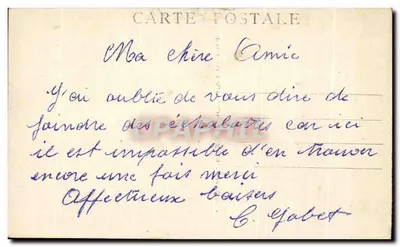 CARTE POSTALE
Ma chère Amie
J'ai oublié de vous dire de
joindre des car ici
il est impossible d'en trouver
encore une fois merci
Affectueux baisers
C. Gobet